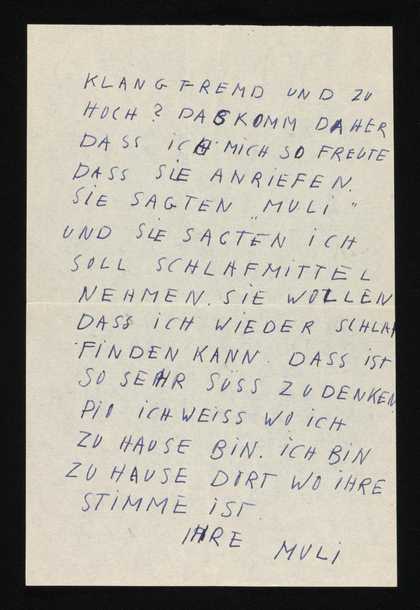 KLANG FREMD UND ZU
HOCH? DASKOMM DAHER
DASS ICH MICH SO FREUTE
DASS SIE ANRIEFEN.
SIE SAGTEN "MULI"
UND SIE SAGTEN ICH
SOLL SCHLAFMITTEL
NEHMEN. SIE WOLLEN
DASS ICH WIEDER SCHLAF
FINDEN KANN. DASS IST
SO SEHR SÜSS ZU DENKEN
PIO ICH WEISS WO ICH
ZU HAUSE BIN. ICH BIN
ZU HAUSE DORT WO IHRE
STIMME IST
IHRE MULI